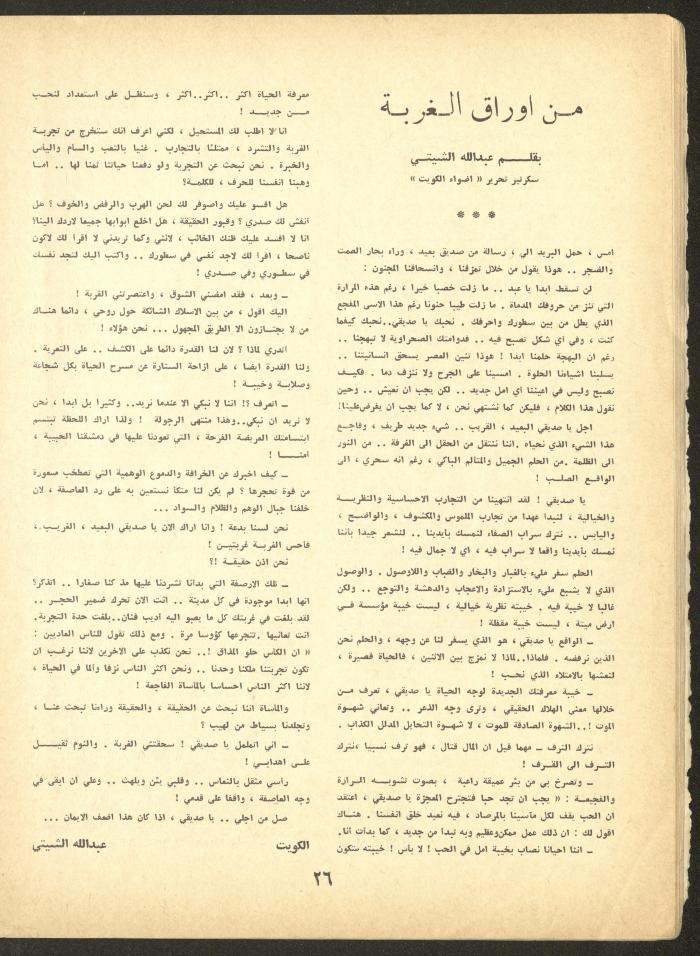 من اوراق الغربة
بقلم عبدالله الشيتي
سكرتير تحرير « اضواء الكويت »
* * *
امس ، حمل البريد الي ، رسالة من صديق بعيد ، وراء بحار الصمت
والضجر .. هوذا يقول من خلال تمزقنا ، وانسحاقنا المجنون :
لن تسقط ابدا يا عبد .. ما زلت خصبا خيرا ، رغم هذه المرارة
التي تنز من حروفك المدماة . ما زلت طيبا حنونا رغم هذا الاسى المفجع
الذي يطل من بين سطورك واحرفك . نحبك يا صديقي..نحبك كيفما
كنت ، وفي أي شكل تصبح فيه .. فدوامتك الصحراوية لا تبهجنا ..
رغم ان البهجة حلمنا ابدا ! هوذا تنين العصر يسحق انسانيتنا ..
يسلبنا اشياءنا الحلوة . امسينا على الجرح ولا ننزف دما . فكيف
نصبح وليس في اعيننا أي امل جديد .. لكن يجب ان نعيش .. وحين
نقول هذا الكلام ، فليكن كما نشتهي نحن ، لا كما يجب ان يفرض علينا!
اجل يا صديقي البعيد ، القريب .. شيء جديد طريف ، وفاجع
هذا الشيء الذي نحياه .اننا ننتقل من الحقل الى الغرفة .. من النور
الى الظلمة .من الحلم الجميل والمتالم الباكي ، رغم انه سحري ، الى
الواقع الصلب !
يا صديقي ! لقد انتهينا من التجارب الاحساسية والنظرية
والخيالية ، لنبدأ عهدا من تجارب الملموس والمكشوف ، والواضح ،
واليابس .. نترك سراب الصفاء لنمسك بأيدينا .. لنشعر جيدا بأننا
نمسك بأيدينا واقعا لا سراب فيه ، اي لا جمال فيه !
الحلم سفر مليء بالغبار والبخار والضباب واللاوصول . والوصول
الذي لا يشبع مليء بالاستزادة والاعجاب والدهشة والتوجع .. ولكن
غالبا لا خيبة فيه . خيبته نظرية خيالية ، ليست خيبة مؤسسة في
ارض ميتة ، ليست خيبة مقفلة !
ـ الواقع يا صديقي ، هو الذي يسفر لنا عن وجهه ، والحلم نحن
الذين نرفضه . فلماذا..لماذا لا نمزج بين الاثنين ، فالحياة قصيرة ،
لنعشها بالامتلاء الذي نحب !
ـ خيبة معرفتك الجديدة لوجه الحياة يا صديقي ، تعرف من
خلالها معنى الهلاك الحقيقي ، وترى وجه الذعر .. وتعاني شهوة
الموت !..الشهوة الصادقة للموت ، لا شهوة التحايل المدلل الكذاب .
نترك الترف ـ مهما قيل ان المال قتال ، فهو ترف نسبيا ،نترك
الترف الى القرف !
ـ وتصرخ بي من بئر عميقة راعبة ، بصوت تشوبه المرارة
والفجيعة : « يجب ان نجد حبا فنجترح المعجزة يا صديقي ، اعتقد
ان الحب يقف لكل مآسينا بالمرصاد ، فيه نعيد خلق انفسنا . هناك
اقول لك : ان ذلك عمل ممكن وعظيم وبه نبدأ من جديد ، كما بدأت انا.
ـ اننا احيانا نصاب بخيبة امل في الحب ! لا بأس ! خيبته ستكون
معرفة الحياة اكثر ..اكثر..اكثر ، وسنظل على استعداد لنحب
من جديد !
انا لا اطلب لك المستحيل ، لكني اعرف انك ستخرج من تجربة
الغربة والتشرد ، ممتلئا بالتجارب . غنيا بالتعب والسأم واليأس
والخبرة . نحن نبحث عن التجربة ولو دفعنا حياتنا ثمنا لها .. اما
وهبنا انفسنا للحرف ، للكلمة؟
هل اقسو عليك واصوفر لك لحن الهرب والرفض والخوف ؟ هل
انقش لك صدري ؟ وقبور الحقيقة ، هل اخلع ابوابها جميعا لاردك الينا؟
انا لا افسد عليك ظنك الخائب ، لانني وكما تريدني لا اقرأ لك لاكون
ناصحا ، اقرأ لك لاجد نفسي في سطورك .. واكتب اليك لتجد نفسك
في سطوري وفي صدري !
ـ وبعد ، فقد امضني الشوق ، واعتصرتني الغربة !
اليك اقول ، من بين الاسلاك الشائكة حول روحي ، دائما هناك
من لا يجتازون الا الطريق المجهول ... نحن هؤلاء !
اتدري لماذا ؟ لان لنا القدرة دائما على الكشف .. على التعرية .
ولنا القدرة ايضا ، على ازاحة الستارة عن مسرح الحياة بكل شجاعة
وصلابة وخيبة !
ـ اتعرف ؟! اننا لا نبكي الا عندما نريد..وكثيرا بل ابدا ، نحن
لا نريد ان نبكي..وهذا منتهى الرجولة ! ولذا اراك اللحظة تبتسم
ابتسامتك العريضة الفرحة ، التي تعودنا عليها في دمشقنا الحبيبة ،
امنا !
ـ كيف اخبرك عن الخرافة والدموع الوهمية التي تمطخب مسعورة
من قوة تحجرها ؟ لم يكن لنا متكأ نستعين به على رد العاصفة ، لان
خلفنا جبال الوهم والظلام والسواد ...
نحن لسنا بدعة ! وانا اراك الان يا صديقي البعيد ، القريب ..
فأحس الغربة غربتين !
نحن اذن حقيقة ؟!
ـ تلك الارصفة التي بدأنا تشردنا عليها مذ كنا صغارا .. اتذكر؟
انها ابدا موجودة في كل مدينة .. انت الان تحرك ضمير الحجر ..
لقد بلغت في غربتك كل ما يصبو اليه اديب فنان..بلغت حدة التجربة.
انت تعانيها .تتجرعها كؤوسا مرة . ومع ذلك تقول للناس العاديين :
« ان الكأس حلو المذاق !.. نحن نكذب على الاخرين لاننا نرغب ان
تكون تجربتنا ملكنا وحدنا .. ونحن اكثر الناس نزفا والما في الحياة ،
لاننا اكثر الناس احساسا بالمأساة الفاجعة !
والمأساة اننا نبحث عن الحقيقة ، والحقيقة وراءنا تبحث عنا ،
وتجلدنا بسياط من لهيب ؟
ـ اني اتململ يا صديقي ! سحقتني الغربة . والنوم ثقيل
على اهدابي !
رأسي مثقل بالنعاس .. وقلبي يئن ويلهث .. وعلي ان ابقى في
وجه العاصفة ، واقفا على قدمي !
صل من اجلي .. يا صديقي ، اذا كان هذا اضعف الايمان ...
الكويت عبدالله الشيتي
٢٦